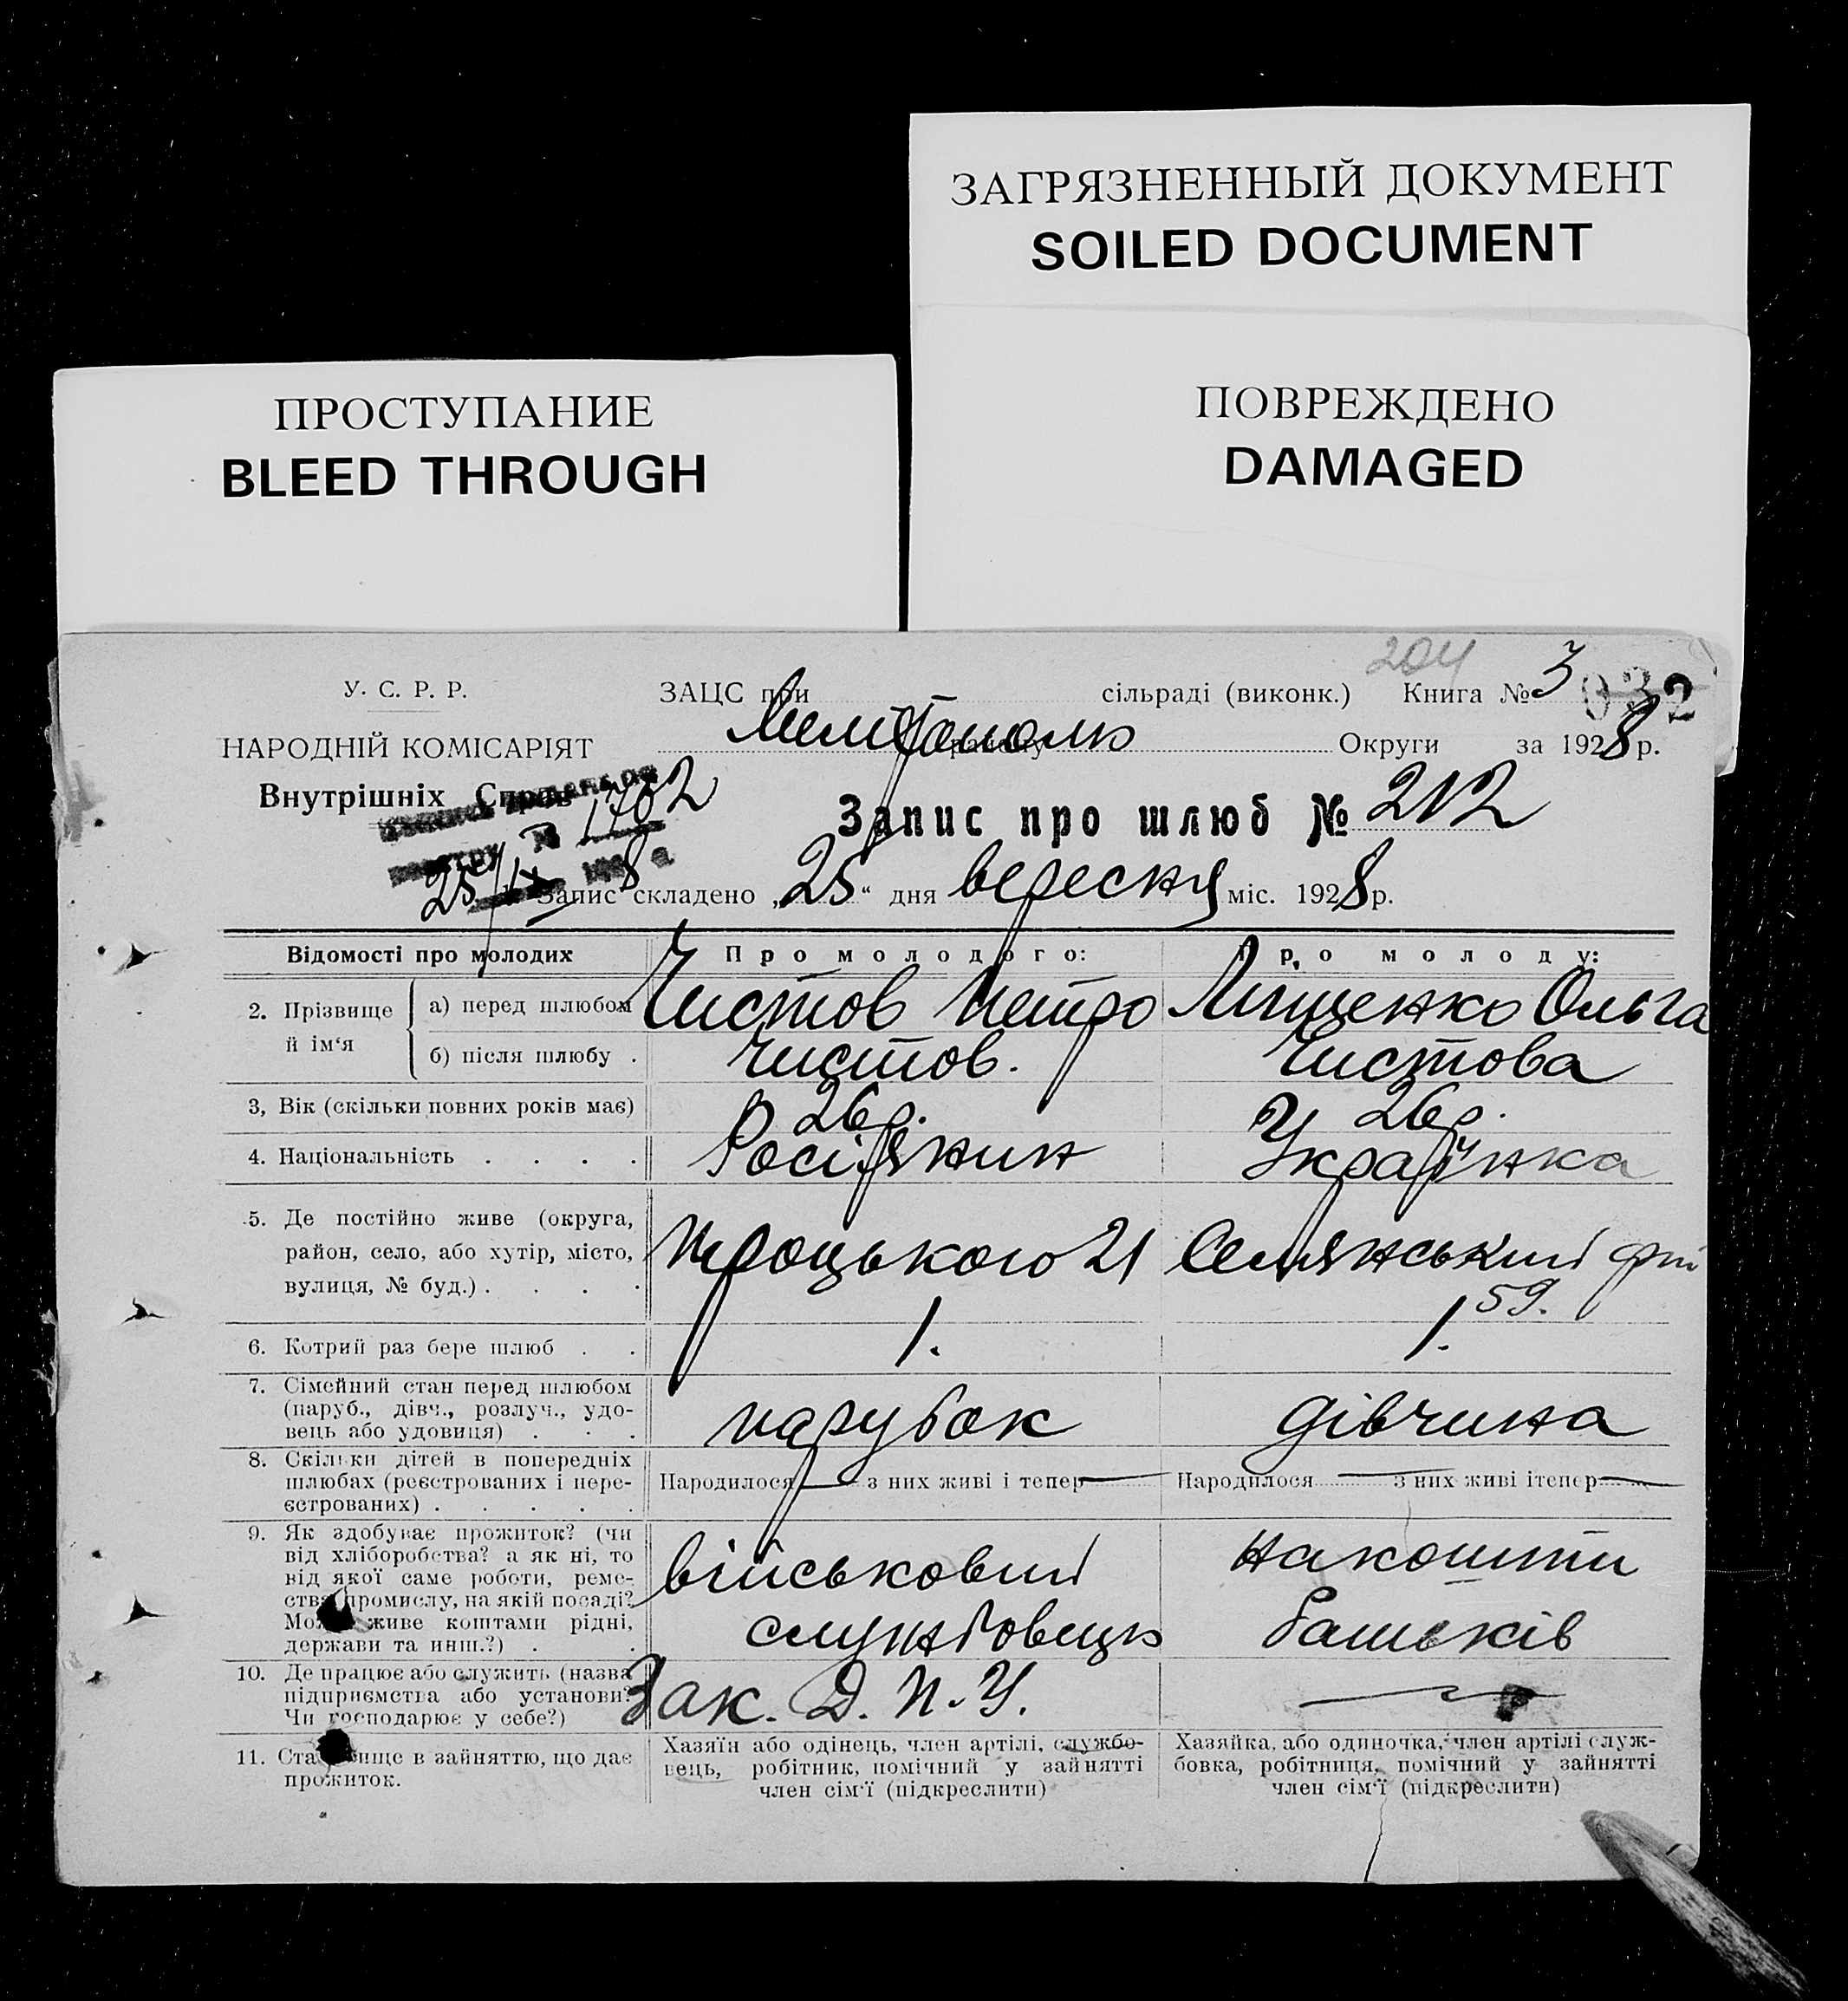 ЗАГРЯЗНЕННЫЙ ДОКУМЕНТ
SOILED DOCUMENT
ПРОСТУПАНИЕ
BLEED THROUGH
ПОВРЕЖДЕНО
DAMAGED
204
У. С. Р. Р.
НАРОДНІЙ КОМІСАРІЯТ
Внутрішніх Справ
ЗАЦС при сільраді (виконк.) Книга № 3 032
Мелітополь району Округи за 1928 р.
№ 1702
25/IX 1928
Запис про шлюб № 212
Запис складено „25“ дня вересня міс. 1928 р.
Відомості про молодих
Про молодого:
Про молоду:
2. Прізвище й ім‘я
а) перед шлюбом
Чистов Петро
Лищенко Ольга
б) після шлюбу .
Чистов.
Чистова
3, Вік (скільки повних років має)
26 р.
26 р.
4. Національність . . . .
Росіянин
Українка
5. Де постійно живе (округа,
район, село, або хутір, місто,
вулиця, № буд.) . . . .
Троцького 21
59.
6. Котрий раз бере шлюб . .
1.
1.
7. Сімейний стан перед шлюбом
(паруб., дівч., розлуч., удо-
вець або удовиця) . . .
парубок
дівчина
8. Скільки дітей в попередніх
шлюбах (реєстрованих і нере-
єстрованих) . . . . .
Народилося — з них живі і тепер —
Народилося — з них живі ітепер —
9. Як здобуває прожиток? (чи
від хліборобства? а як ні, то
від якої саме роботи, реме-
ства промислу, на якій посаді?
живе коштами рідні,
держави та инш.?) . .
військовий
службовець
на кошти
батьків
10. Де працює або служить (назва
підприємства або установи?
Чи господарює у себе?)
Зак. Д. П. У.
—
11. Становище в зайняттю, що дає
прожиток.
Хазяїн або одінець, член артілі, службо-
вець, робітник, помічний у зайнятті
член сім‘ї (підкреслити)
Хазяйка, або одиночка, член артілі служ-
бовка, робітниця, помічний у зайнятті
член сім‘ї (підкреслити)